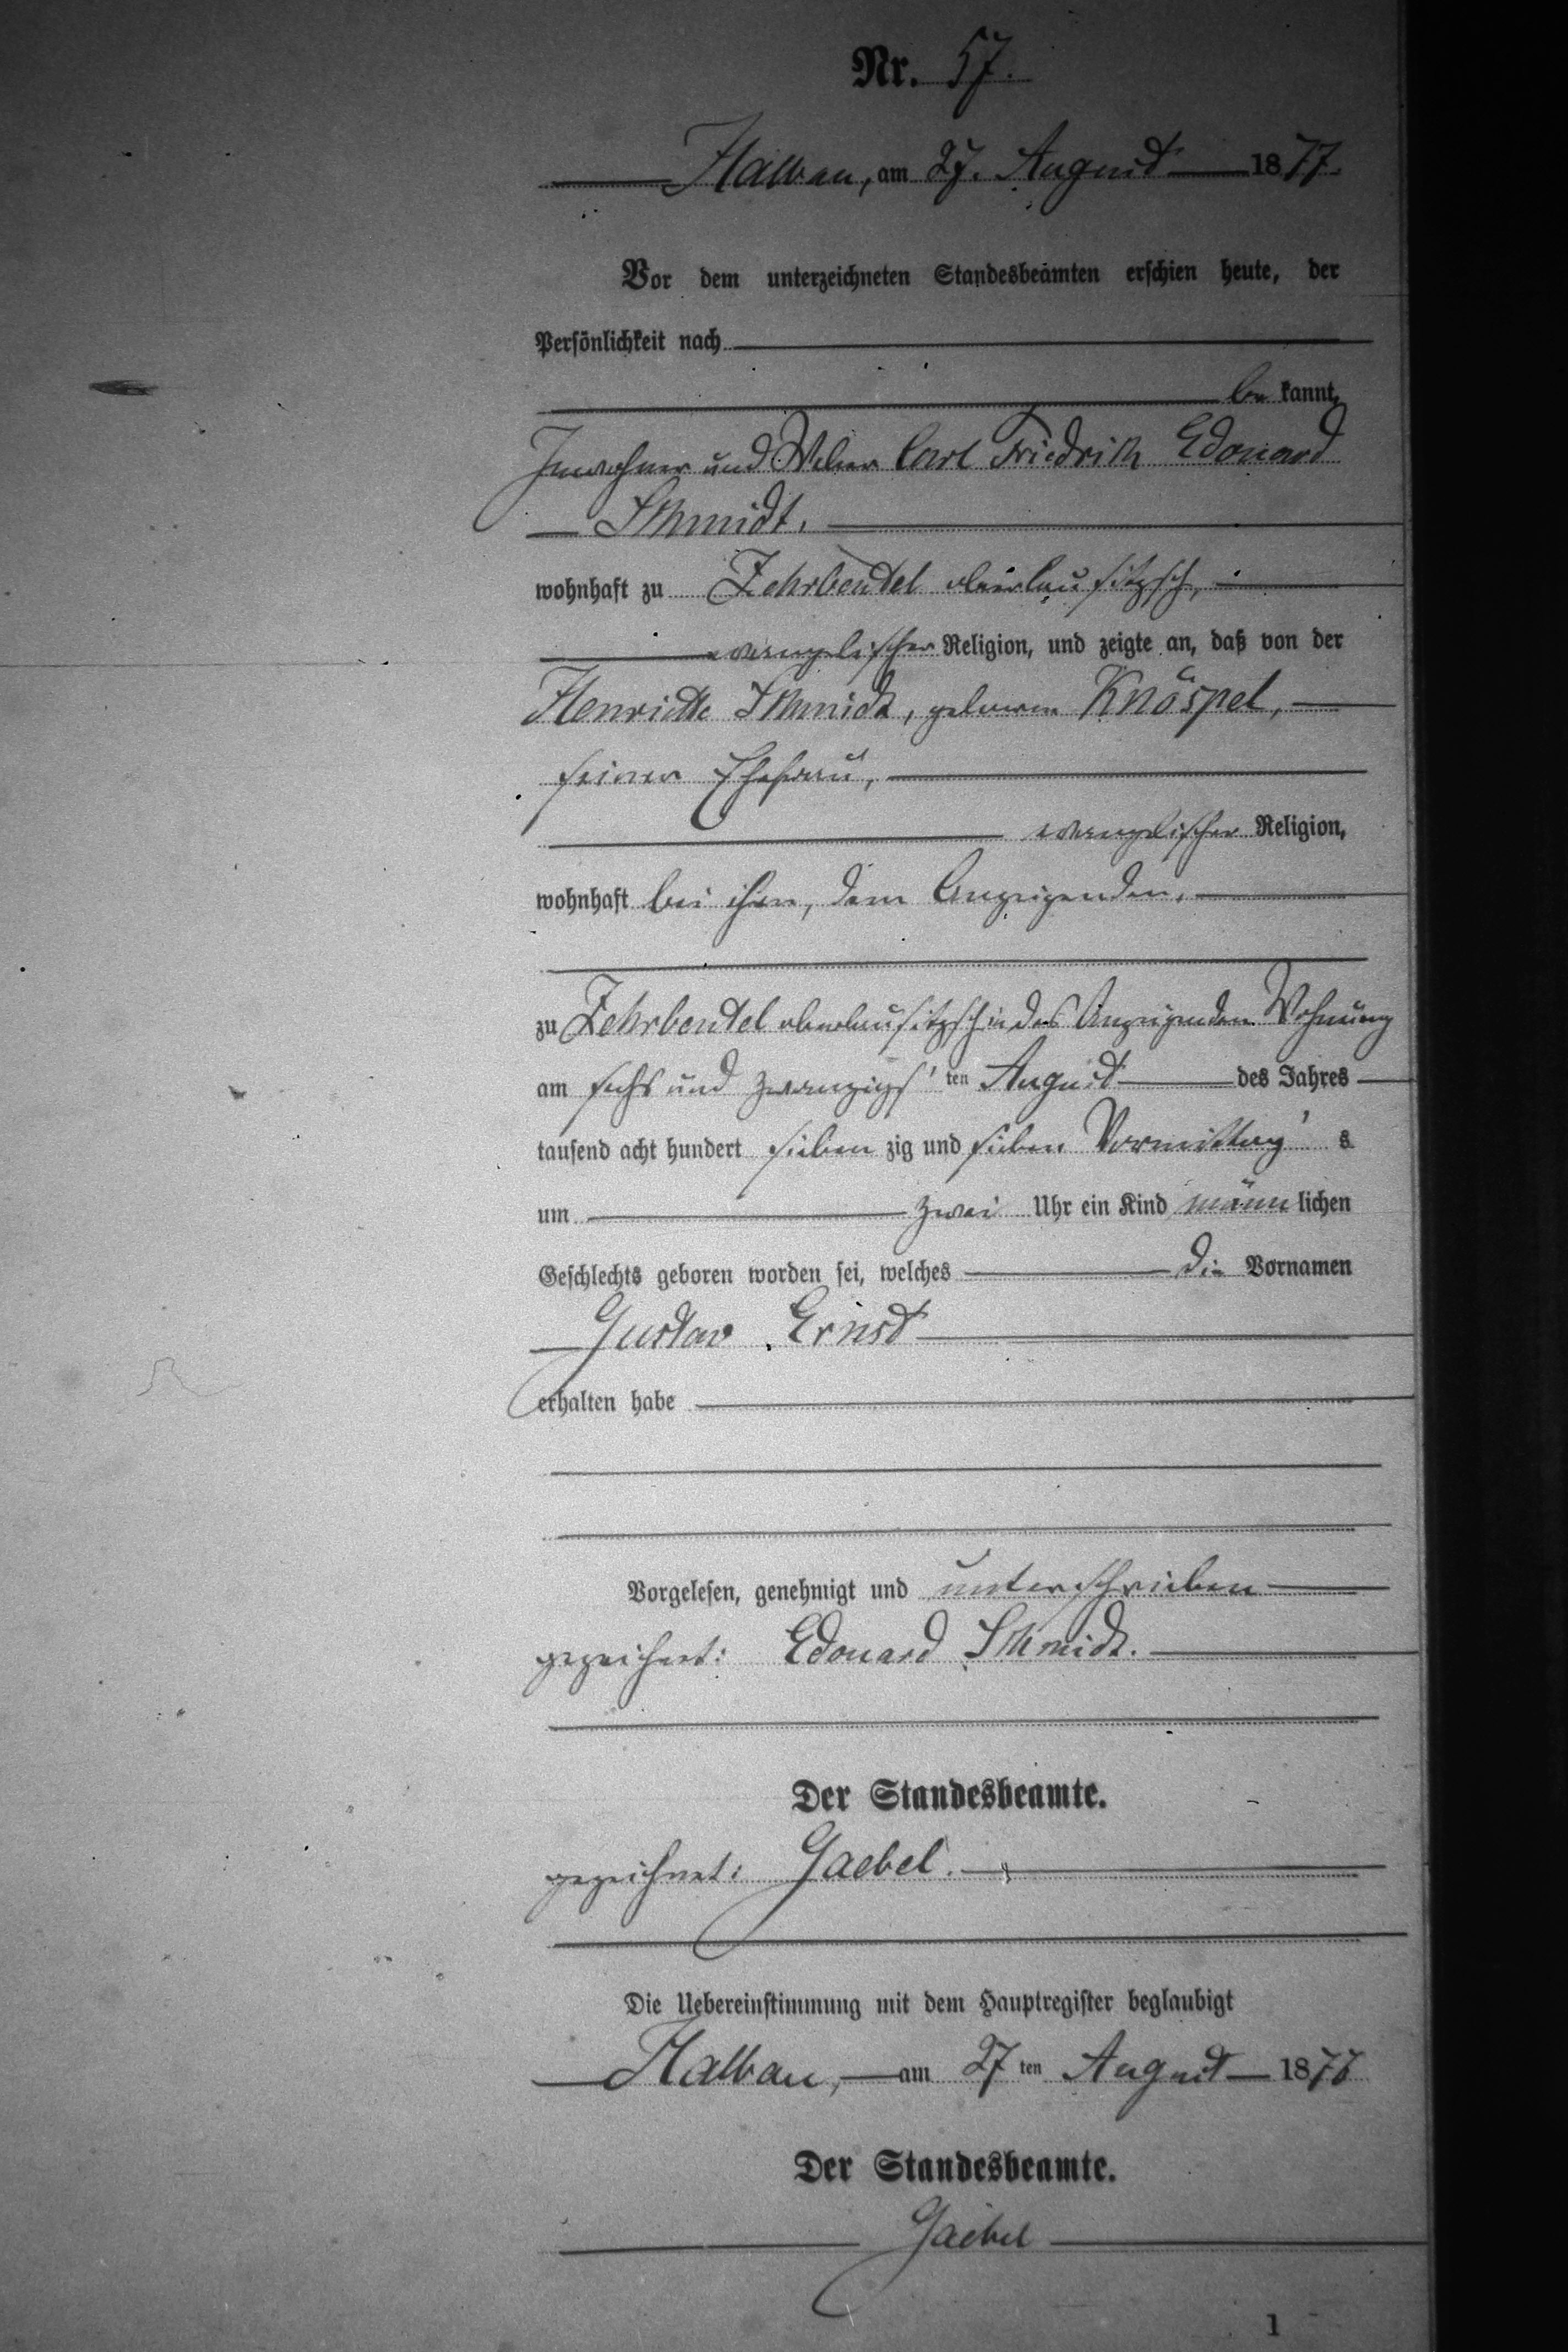 Nr. 57.
Halbau, am 27. August 1877.
Vor dem unterzeichneten Standesbeamten erschien heute, der
Persönlichkeit nach
be kannt,
Inwohner und Weber Carl Friedrich Edouard
Schmidt.
wohnhaft zu Zehrbeutel oberlausitzsch,
evangelischer Religion, und zeigte an, daß von der
Henriette Schmidt, geborene Knöspel,
seiner Ehefrau,
evangelischer Religion,
wohnhaft bei ihm, dem Anzeigenden,
zu Zehrbeutel oberlausitzsch in des Anzeigenden Wohnung
am sechs und zwanzigs ten August des Jahres
tausend acht hundert sieben zig und sieben Vormittag s
um zwei Uhr ein Kind männ lichen
Geschlechts geboren worden sei, welches die Vornamen
Gustav Ernst
erhalten habe
Vorgelesen, genehmigt und unterschrieben
gezeichnet: Edouard Schmidt.
Der Standesbeamte.
gezeichnet: Gaebel.
Die Uebereinstimmung mit dem Hauptregister beglaubigt
Halbau, am 27 ten August 1877
Der Standesbeamte.
Gaebel
1